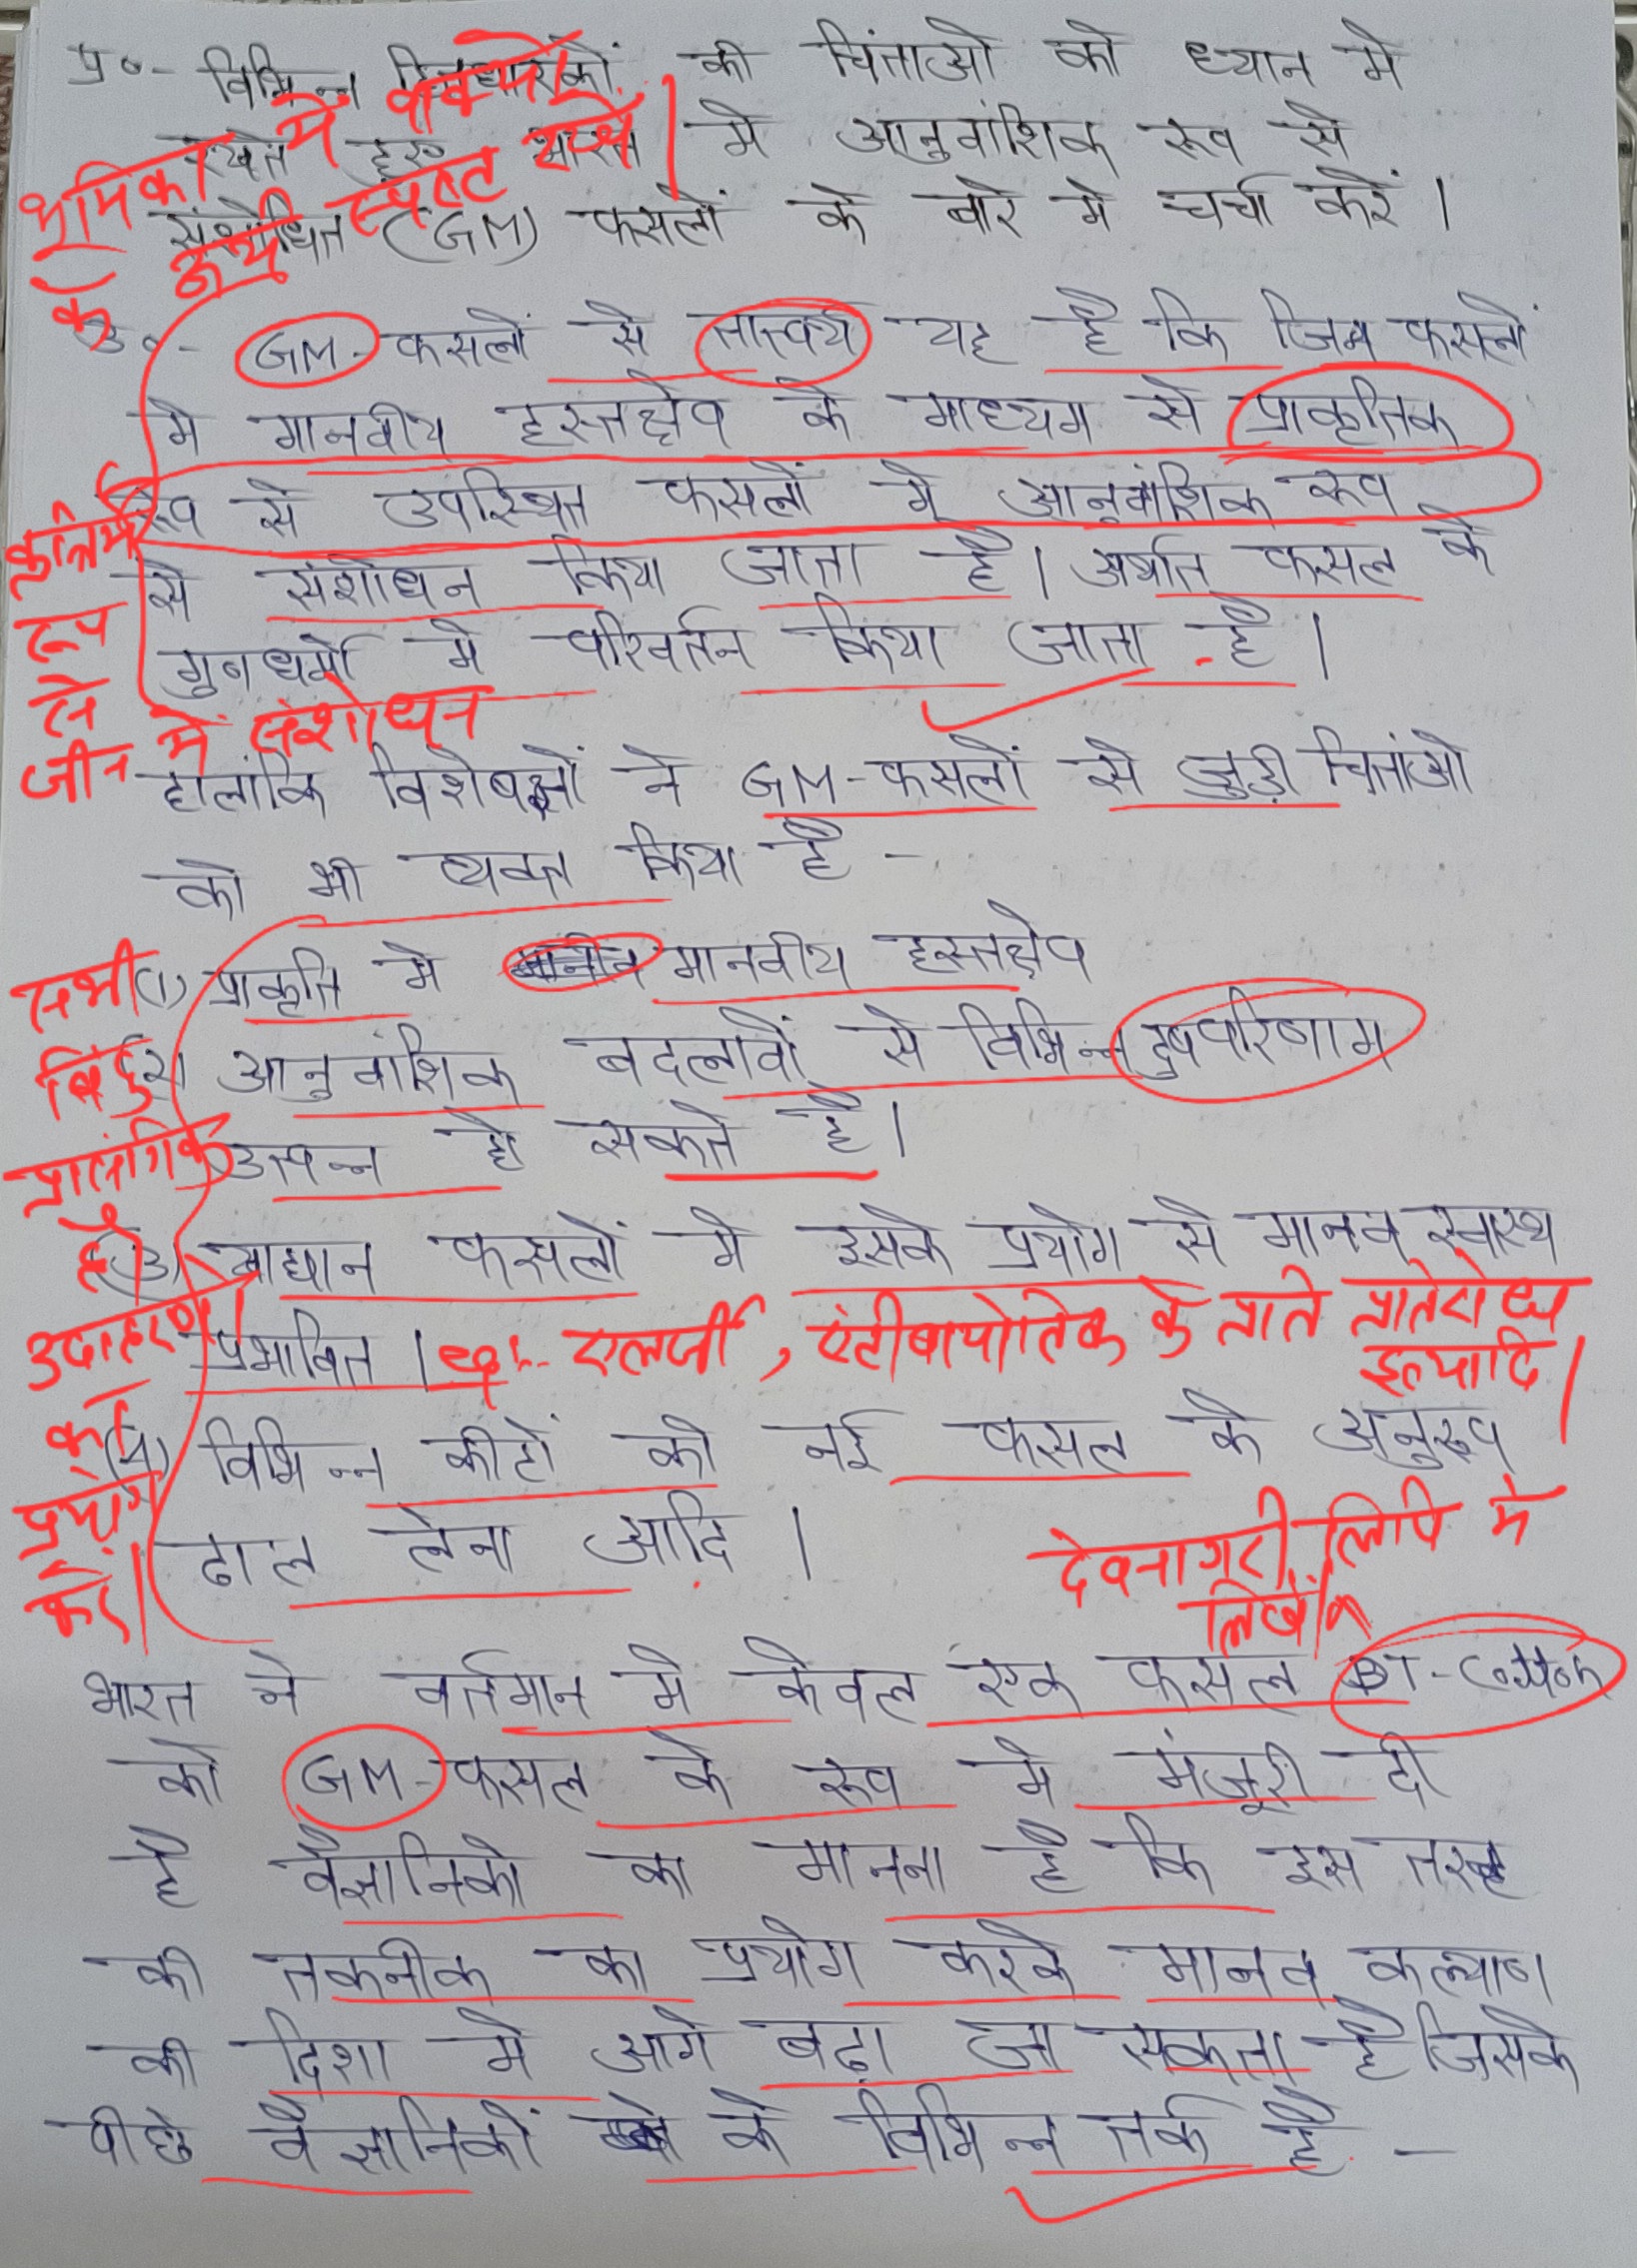 प्र०- विभिन्न हितधारकों की चिंताओ को ध्यान मे
रखते हुए भारत मे आनुवांशिक रूप से
संशोधित (GM) फसलों के बारे मे चर्चा करें।
भूमिका में वाक्यों
के अर्थ स्पष्ट रखें।
उ०- GM-फसलों से तात्पर्य यह है कि जिन फसलों
मे मानवीय हस्तक्षेप के माध्यम से प्राकृतिक
रूप से उपस्थित फसलों मे आनुवांशिक रूप
से संशोधन किया जाता है। अर्थात फसल के
गुणधर्मो मे परिवर्तन किया जाता है।
कृत्रिम
रूप
से
जीन में संशोधन
हालांकि विशेषज्ञों ने GM-फसलों से जुड़ी चिंताओ
को भी व्यक्त किया है -
(1) प्राकृति मे मानवीय हस्तक्षेप
(2) आनुवांशिक बदलावों से विभिन्न दुषपरिणाम
उत्पन्न हो सकते है।
(3) खाद्यान फसलों मे इसके प्रयोग से मानव स्वास्थ
प्रभावित। एलर्जी, एंटीबायोतिक के प्रति प्रतिरोध
इत्यादि।
(4) विभिन्न कीटों को नई फसल के अनुरूप
ढाल लेना आदि।
सभी
बिंदु
प्रासंगिक
है।
उदाहरण
का
प्रयोग
करें।
देवनागरी लिपि मे
लिखें।
भारत ने वर्तमान मे केवल एक फसल BT-Cotton
को GM-फसल के रूप मे मंजूरी दी
है वैज्ञानिको का मानना है कि इस तरह
की तकनीक का प्रयोग करके मानव कल्याण
की दिशा मे आगे बढ़ा जा सकता है जिसके
पीछे वैज्ञानिकों के विभिन्न तर्क है -